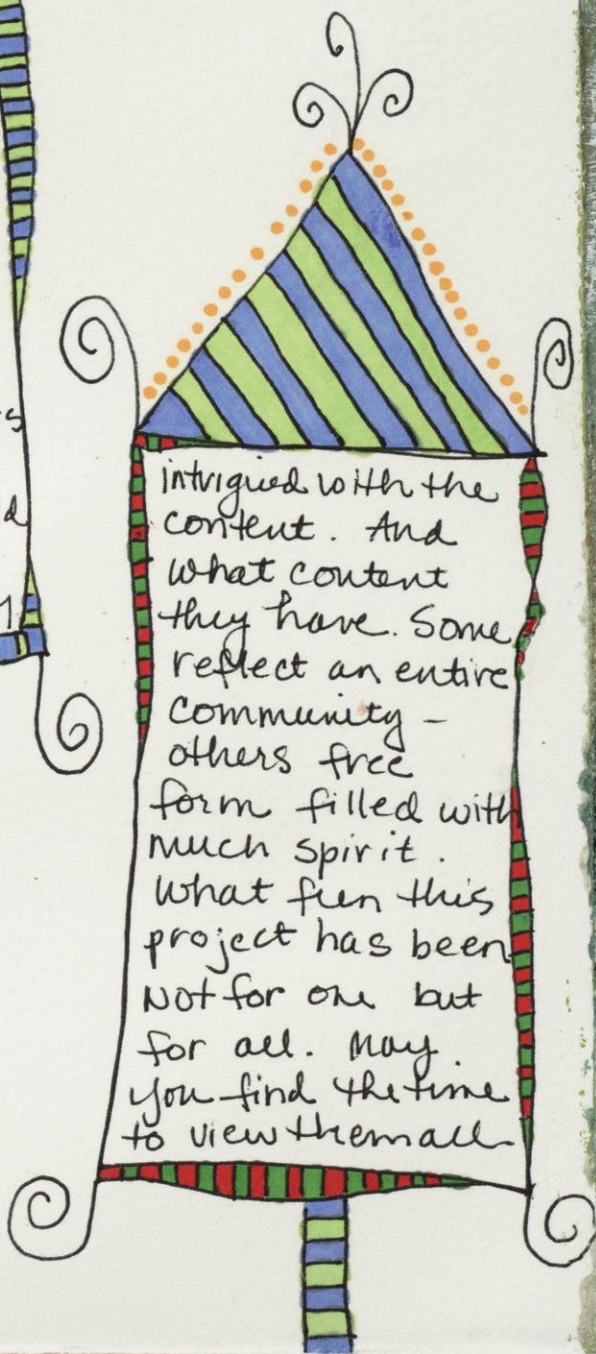 intrigued with the
content. And
what content
they have. Some
reflect an entire
community -
others free
form filled with
much spirit.
What fun this
project has been
Not for one but
for all. May
you find the time
to view them all